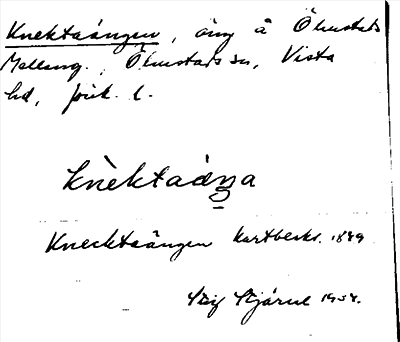 Knektaängen, äng å Ölmstads
Mellang., Ölmstads sn, Vista
hd, Jönk. l.
knèktaäŋa
Knecktaängen kartbeskr. 1849
Stig Stjärne 1954.